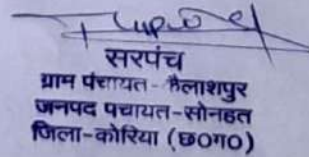 सरपंच
ग्राम पंचायत - कैलाशपुर
जनपद पचायत-सोनहत
जिला-कोरिया (छ०ग०)